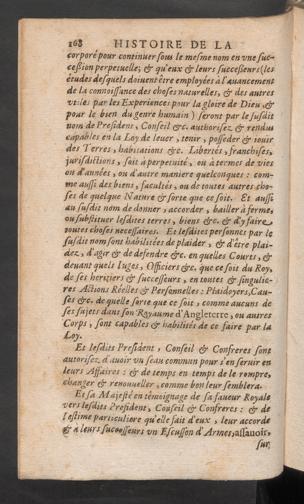 168 HISTOIRE DE LA
corporé pour continuer sous le mesme nom en vne suc-
cession perpetuelle; & qu'eux & leurs successeurs (les
études desquels doiuent être employées à l'auancement
de la connoissance des choses naturelles, & des autres
vtiles par les Experiences pour la gloire de Dieu, &
pour le bien du genre humain) seront par le susdit
nom de President, Conseil &c. authorisez & rendus
capables en la Loy de leuer, tenir, posseder & iouir
des Terres, habitations &c. Libertés, franchises,
jurisdictions, soit à perpetuité, ou à termes de vies
ou d'années, ou d'autre maniere quelconques: com-
me aussi des biens, facultés, ou de toutes autres cho-
ses de quelque Nature & sorte que ce soit. Et aussi
au susdit nom de donner, accorder, bailler à ferme,
ou substituer lesdites terres, biens &c. & d'y faire
toutes choses necessaires. Et lesdites personnes par le
susdit nom sont habilitées de plaider, & d'être plai-
dez, d'agir & de defendre &c. en quelles Cours, &
deuant quels Iuges, Officiers &c. que ce soit du Roy,
de ses heritiers & successeurs, en toutes & singulie-
res Actions Réelles & Personnelles: Plaidoyers, Cau-
ses &c. de quelle sorte que ce soit, comme aucuns de
ses sujets dans son Royaume d'Angleterre, ou autres
Corps, sont capables & habilités de ce faire par la
Loy.
Et lesdits President, Conseil & Confreres sont
autorisez, d'auoir vn seau commun pour s'en seruir en
leurs Affaires: & de temps en temps de le rompre,
changer & renouueller, comme bon leur semblera.
Et sa Majesté en témoignage de sa faueur Royale
vers lesdits President, Conseil & Confreres: & de
l'estime particuliere qu'elle fait d'eux, leur accorde
& à leurs successeurs vn Escusson d'Armes, assauoir,
sur